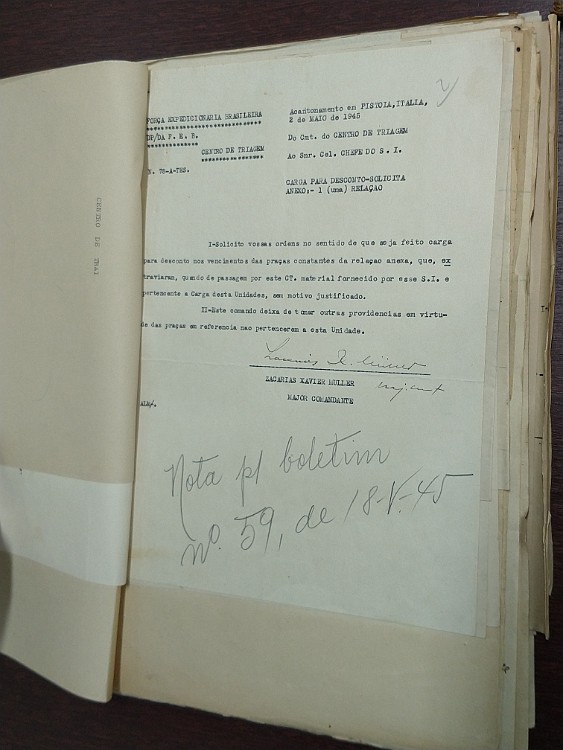 FORÇA EXPEDICIONARIA BRASILEIRA
DP/DA F. E. B.
CENTRO DE TRIAGEM
N. 78-A-TES.
Acantonamento em PISTOIA, ITALIA,
2 de MAIO de 1945
Do Cmt. do CENTRO DE TRIAGEM
Ao Snr. Cel. CHEFE DO S. I.
CARGA PARA DESCONTO-SOLICITA
ANEXO;- 1 (uma) RELAÇAO
I-Solicito vossas ordens no sentido de que seja feito carga
para desconto nos vencimentos das praças constantes da relaçao anexa, que, ex
traviaram, quando de passagem por este CT. material fornecido por esse S.I. e
pertencente a Carga desta Unidades, sem motivo justificado.
II-Este comando deixa de tomar outras providencias em virtu-
de das praças em referencia nao pertencerem a esta Unidade.
ZACARIAS XAVIER MULLER
MAJOR COMANDANTE
Nota p/ boletim
nº. 59, de 18-V-45